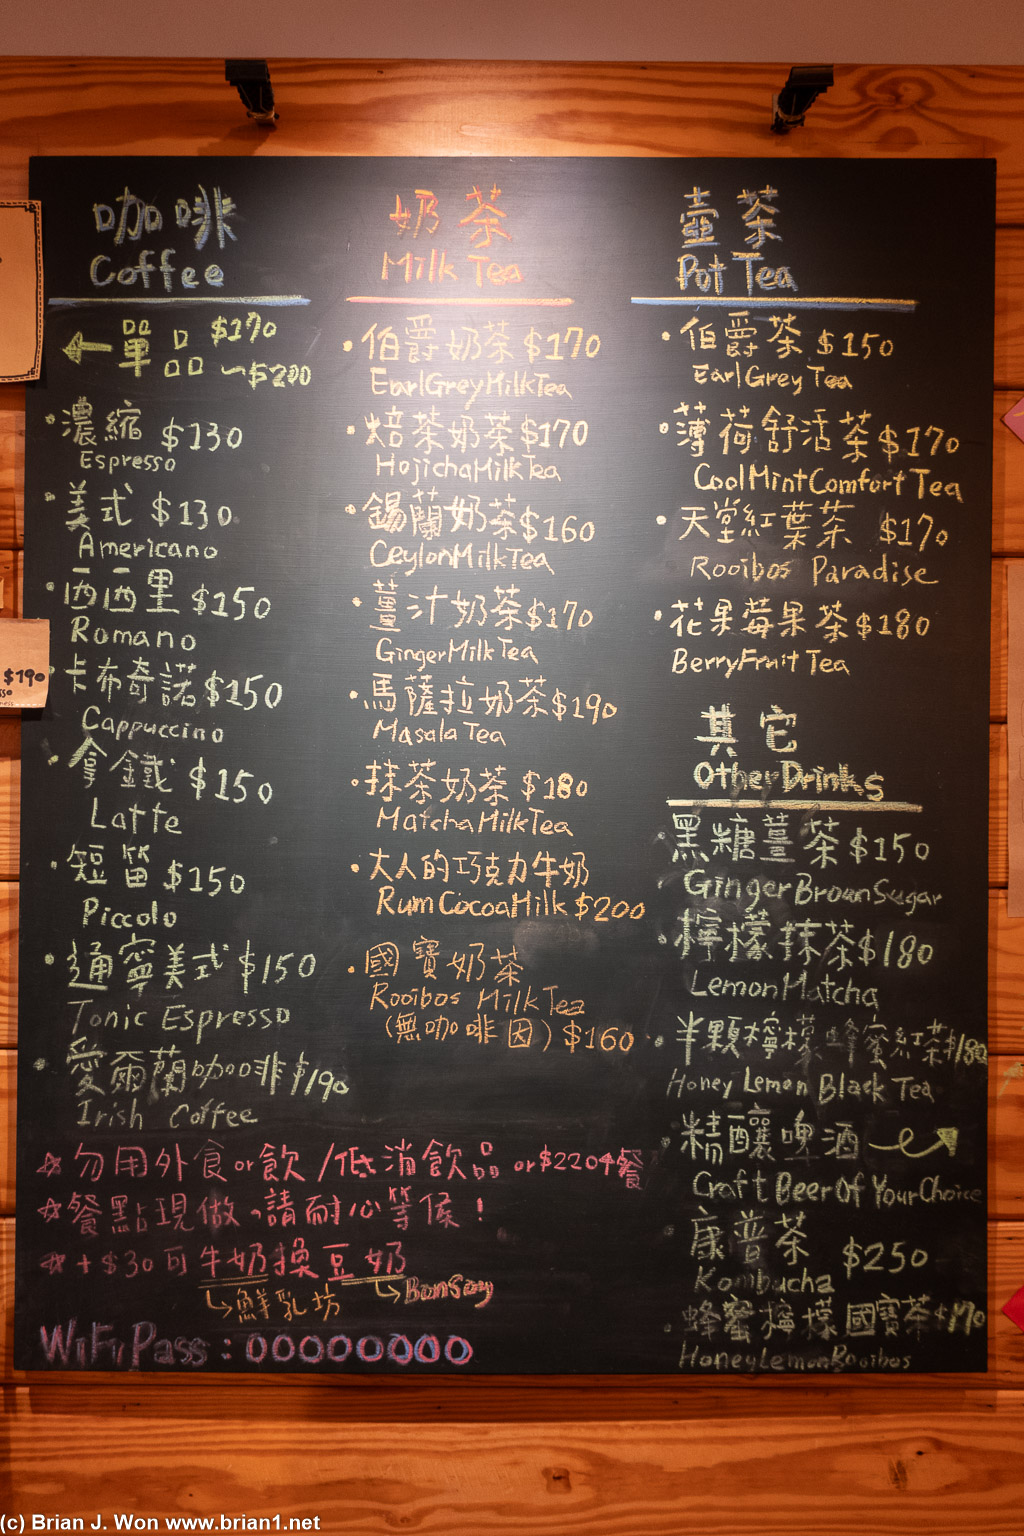 咖啡
Coffee
單品 $170
~$200
濃縮 $130
Espresso
美式 $130
Americano
西西里 $150
Romano
卡布奇諾 $150
Cappuccino
拿鐵 $150
Latte
短笛 $150
Piccolo
通寧美式 $150
Tonic Espresso
愛爾蘭咖啡 $190
Irish Coffee
奶茶
Milk Tea
伯爵奶茶 $170
Earl Grey Milk Tea
焙茶奶茶 $170
Hojicha Milk Tea
錫蘭奶茶 $160
Ceylon Milk Tea
薑汁奶茶 $170
Ginger Milk Tea
馬薩拉奶茶 $190
Masala Tea
抹茶奶茶 $180
Matcha Milk Tea
大人的巧克力牛奶
Rum Cocoa Milk $200
國寶奶茶
Rooibos Milk Tea
(無咖啡因) $160
壺茶
Pot Tea
伯爵茶 $150
Earl Grey Tea
薄荷舒活茶 $170
Cool Mint Comfort Tea
天堂紅葉茶 $170
Rooibos Paradise
花果莓果茶 $180
Berry Fruit Tea
其它
Other Drinks
黑糖薑茶 $150
Ginger Brown Sugar
檸檬抹茶 $180
Lemon Matcha
半顆檸檬蜂蜜紅茶 $180
Honey Lemon Black Tea
精釀啤酒
Craft Beer Of Your Choice
康普茶 $250
Kombucha
蜂蜜檸檬國寶茶 $170
Honey Lemon Rooibos
☆勿用外食or飲/低消飲品 or $220↑餐
☆餐點現做、請耐心等候!
☆+$30可牛奶換豆奶
鮮乳坊 Bonsoy
WiFi Pass: 00000000
$190
(c) Brian J. Won www.brian1.net